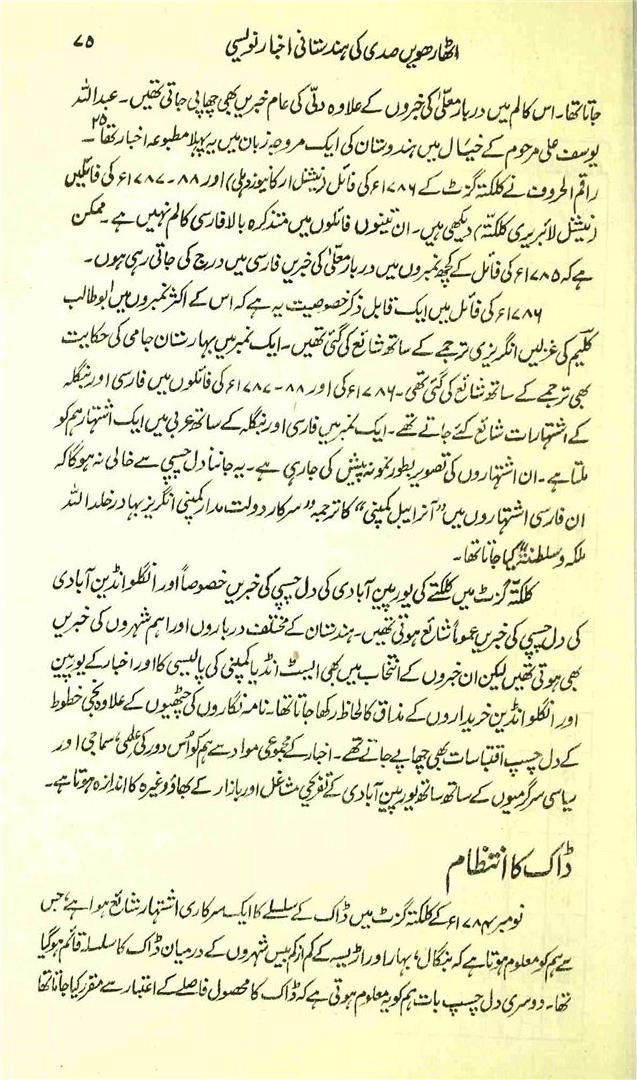 اٹھارھویں صدی کی ہندستانی اخبار نویسی ۷۵
جاتا تھا۔ اس کالم میں دربار معلّیٰ کی خبروں کے علاوہ دلّی کی عام خبریں بھی چھاپی جاتی تھیں۔ عبداللہ
یوسف علی مرحوم کے خیال میں ہندوستان کی ایک مروجہ زبان میں یہ پہلا مطبوعہ اخبار تھا۲۵۔
راقم الحروف نے کلکتہ گزٹ کے ۱۷۸۶ء کی فائل (نیشنل ارکائیوز دہلی) اور ۸۸-۱۷۸۷ء کی فائلیں
(نیشنل لائبریری کلکتہ) دیکھی ہیں۔ ان تینوں فائلوں میں متذکرہ بالا فارسی کالم نہیں ہے۔ ممکن
ہے کہ ۱۷۸۵ء کی فائل کے کچھ نمبروں میں دربار معلّیٰ کی خبریں فارسی میں درج کی جاتی رہی ہوں۔
۱۷۸۶ء کی فائل میں ایک قابل ذکر خصوصیت یہ ہے کہ اس کے اکثر نمبروں میں ابوطالب
کلیم کی غزلیں انگریزی ترجمے کے ساتھ شائع کی گئی تھیں۔ ایک نمبر میں بہارستان جامی کی حکایت
بھی ترجمے کے ساتھ شائع کی گئی تھی۔ ۱۷۸۶ء کی اور ۸۸-۱۷۸۷ء کی فائلوں میں فارسی اور بنگلہ
کے اشتہارات شائع کئے جاتے تھے۔ ایک نمبر میں فارسی اور بنگلہ کے ساتھ عربی میں ایک اشتہار ہم کو
ملتا ہے۔ ان اشتہاروں کی تصویر بطور نمونہ پیش کی جارہی ہے۔ یہ جاننا دل چسپی سے خالی نہ ہوگا کہ
ان فارسی اشتہاروں میں ”آنرایبل کمپنی“ کا ترجمہ ”سرکار دولت مدار کمپنی انگریز بہادر خلد اللہ
ملکہ وسلطنتہ“ کیا جاتا تھا۔
کلکتہ گزٹ میں کلکتے کی یورپین آبادی کی دل چسپی کی خبریں خصوصاً اور انگلو انڈین آبادی
کی دل چسپی کی خبریں عموماً شائع ہوتی تھیں۔ ہندستان کے مختلف درباروں اور اہم شہروں کی خبریں
بھی ہوتی تھیں لیکن ان خبروں کے انتخاب میں بھی ایسٹ انڈیا کمپنی کی پالیسی کا اور اخبار کے یورپین
اور انگلو انڈین خریداروں کے مذاق کا لحاظ رکھا جاتا تھا۔ نامہ نگاروں کی چٹھیوں کے علاوہ نجی خطوط
کے دل چسپ اقتباسات بھی چھاپے جاتے تھے۔ اخبار کے مجموعی مواد سے ہم کو اُس دور کی علمی، سماجی اور
سیاسی سرگرمیوں کے ساتھ ساتھ یورپین آبادی کے تفریحی مشاغل اور بازار کے بھاؤ وغیرہ کا اندازہ ہوتا ہے۔
ڈاک کا انتظام
نومبر ۱۷۸۴ء کے کلکتہ گزٹ میں ڈاک کے سلسلے کا ایک سرکاری اشتہار شائع ہوا ہے، جس
سے ہم کو معلوم ہوتا ہے کہ بنگال، بہار اور اڑیسہ کے کم از کم بیس شہروں کے درمیان ڈاک کا سلسلہ قائم ہوگیا
تھا۔ دوسری دل چسپ بات ہم کو یہ معلوم ہوتی ہے کہ ڈاک کا محصول فاصلے کے اعتبار سے مقرر کیا جاتا تھا